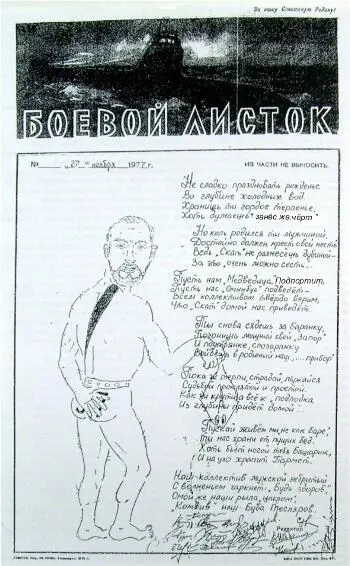 За нашу Советскую Родину!
БОЕВОЙ ЛИСТОК
№ „27" ноября 1977 г. ИЗ ЧАСТИ НЕ ВЫНОСИТЬ.
Не сладко праздновать рожденье
Во глубине холодных вод.
Хранишь ты гордое терпенье,
Хоть думаешь "занёс же, чёрт"
Но коль родился ты мужчиной,
Достойно должен крест свой нести
Ведь "Скат" не разнесёшь дубиной -
За это очень можно сесть!
Пусть нам "Медведица" подпортит,
Пусть нас "Омнибус" подведёт -
Всем коллективом твёрдо верим,
Что "Скат" домой нас приведёт.
Ты снова сядешь за баранку,
Погонишь мощный свой "Запор"
И подтянке, спозаранку
Войдёшь в родимый наш "....прибор"
Пока же терпи, страдай, мужайся
Судьбой проклятой и простой.
Как ни крути, а всё ж, подлодка
Из глубины придёт домой
Пускай живём мы, не как баре,
Ты нас храни от лущих бед.
Хоть бьёт ногой тебя Башарин,
И на ухо храпит Пармет.
Наш коллектив мужской небритый
С волненьем гаркнет: "Будь здоров,
Омой же наши рыла,
"Комдив" наш - Буба Тесляров.
Редактор